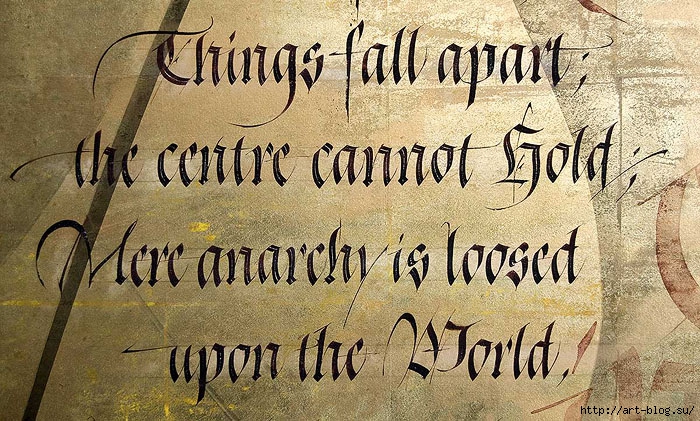 Things fall apart;
the centre cannot Hold;
Mere anarchy is loosed
upon the World,
http://art-blog.su/